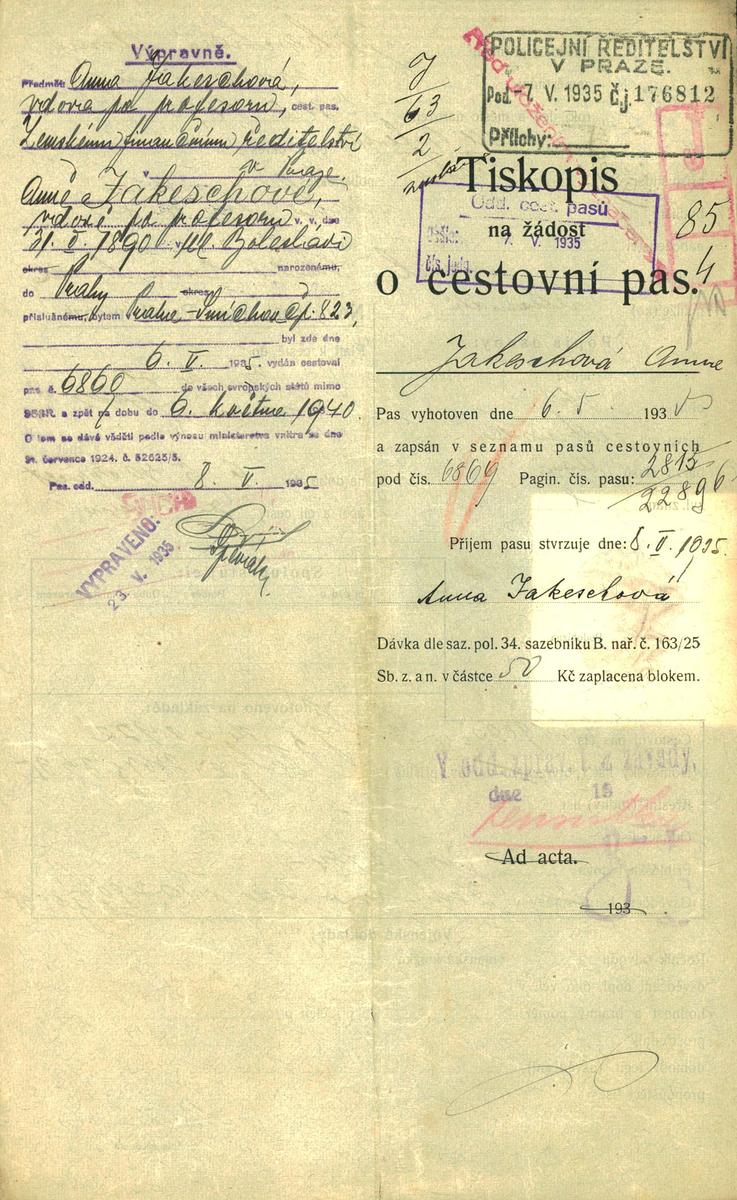 Výpravně.
Předmět: Anna Jakeschová,
vdova po profesoru, cest. pas.
Zemskému finančnímu ředitelství
v Praze.
Anně Jakeschové,
vdově po profesoru v. v. dne
21. II. 1890 v Ml. Boleslavi
okres narozenému,
do Prahy okres
příslušnému, bytem Praha-Smíchov čp: 823,
byl zde dne
6. V. 1935. vydán cestovní
pas č. 6869 do všech evropských států mimo
SSSR. a zpět na dobu do 6. května 1940.
O tom se dává věděti podle výnosu ministerstva vnitra ze dne
31. července 1924. č. 52625/5.
Pas. odd. 8. V. 1935
VYPRAVENO:
23. V. 1935
J
63
2
POLICEJNÍ ŘEDITELSTVÍ
V PRAZE.
Pod. -7. V. 1935 Č.j. 176812
Přílohy:
Tiskopis
Odd. cest. pasů
na žádost
Došlo: 7. V. 1935
čís. jedn.
85
4
o cestovní pas.
Jakeschová Anna
Pas vyhotoven dne 6. 5. 1935
a zapsán v seznamu pasů cestovních
pod čís. 6869 Pagin. čís. pasu: 2813
22896
Příjem pasu stvrzuje dne: 8. V. 1935.
Anna Jakeschová
Dávka dle saz. pol. 34. sazebníku B. nař. č. 163/25
Sb. z. a n. v částce 50 Kč zaplacena blokem.
dne 19
Ad acta.
193